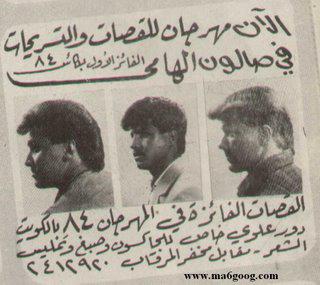 الآن مهرجان للقصات والتسريحات
في صالون الهامى
الفائز الأول بكأس ٨٤
القصات الفائزة في المهرجان ٨٤ بالكويت
دور علوي خاص للجاكسون وصبغ وتمليس
الشعر - مقابل مخفر المرقاب ٢٤١٢٩٢٠
www.ma6goog.com